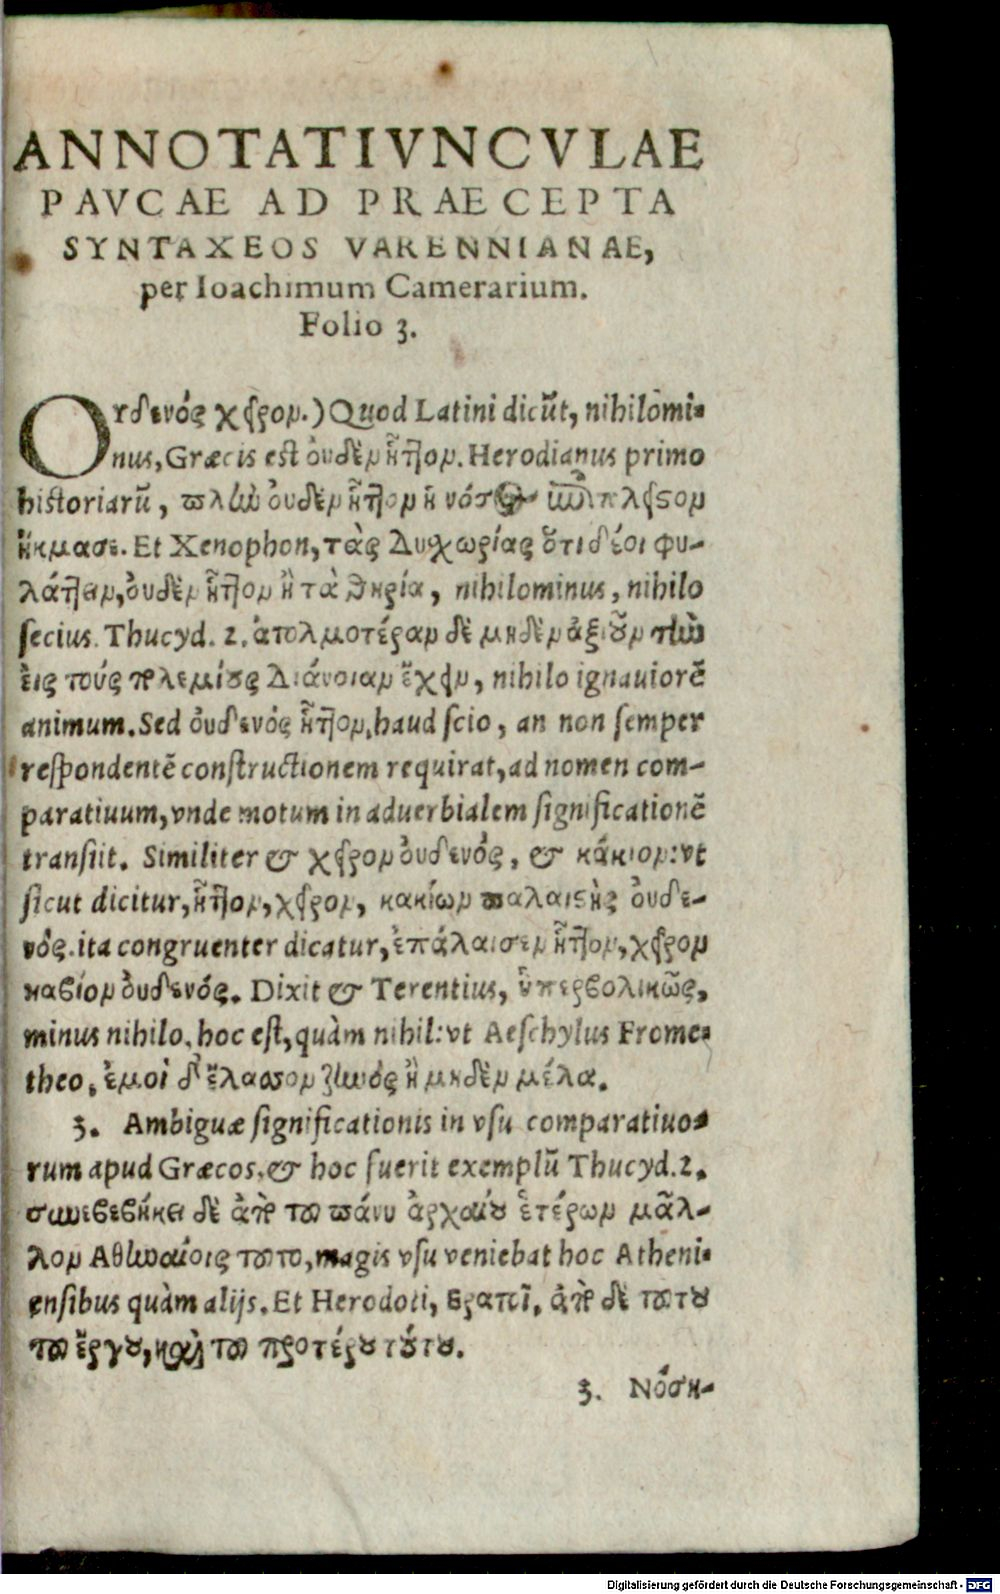 ANNOTATIVNCVLAE
PAVCAE AD PRAECEPTA
SYNTAXEOS VARENNIANAE,
per Ioachimum Camerarium.
Folio 3.
Oυδενός χεῖρον.) Quod Latini dicūt, nihilomi-
nus, Græcis est ὀυδὲν ἧττον. Herodianus primo
historiarū, πλὴν ὀυδὲν ἧττον ἡ νόσος
ἤκμασε. Et Xenophon, τὰς Δυχωρίας ὅτι δέοι φυ-
λάττειν, ὀυδὲν ἧττον ἢ τὰ θηρία, nihilominus, nihilo
secius. Thucyd. 2. ἀτολμοτέραν δὲ μηδὲν ἀξιοῦν τὴν
ἐις τοὺς πολεμίους Διάνοιαν ἔχειν, nihilo ignauiorē
animum. Sed ὀυδενός ἧττον, haud scio, an non semper
respondentē constructionem requirat, ad nomen com-
paratiuum, vnde motum in aduerbialem significationē
transiit. Similiter & χεῖρον ὀυδενός, & κάκιον: vt
sicut dicitur, ἧττον, χεῖρον, κακίων παλαιστὴς ὀυδε-
νός. ita congruenter dicatur, ἐπάλαισεν ἧττον, χεῖρον
κακίον ὀυδενός. Dixit & Terentius, ὑπερβολικῶς,
minus nihilo, hoc est, quàm nihil: vt Aeschylus Prome-
theo, ἐμοὶ δ' ἔλασσον Ζηνὸς ἢ μηδὲν μέλει.
3. Ambiguæ significationis in vsu comparatiuo-
rum apud Græcos, & hoc fuerit exemplū Thucyd. 2.
συνεβεβήκει δὲ ἀπὸ του πάνυ ἀρχαίου ἑτέρων μᾶλ-
λον Ἀθηναίοις τοῦτο, magis vsu veniebat hoc Atheni-
ensibus quàm alijs. Et Herodoti, ἐρατοῖ, ἀπὸ δὲ τούτου
του ἔργου, καὶ του προτέρου τούτου.
3. Νόση-
Digitalisierung gefördert durch die Deutsche Forschungsgemeinschaft - DFG